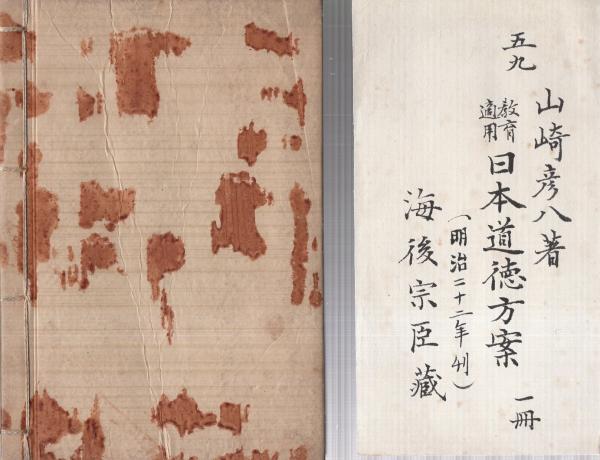 五九
山崎彦八著
教育
適用
日本道徳方案
一冊
(明治二十二年刊)
海後宗臣蔵